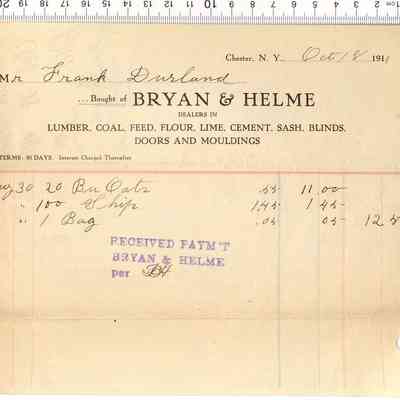 Chester, N. Y. Oct 18 1911
Mr Frank Durland
...Bought of BRYAN & HELME
DEALERS IN
LUMBER, COAL, FEED, FLOUR, LIME, CEMENT, SASH, BLINDS,
DOORS AND MOULDINGS
TERMS: 30 DAYS. Interest Charged Thereafter
30 20 Bu Oats .55 11.00
" 100 Ship 1.45 1 45
" 1 Bag .05 05 12 5
RECEIVED PAYM'T
BRYAN & HELME
per